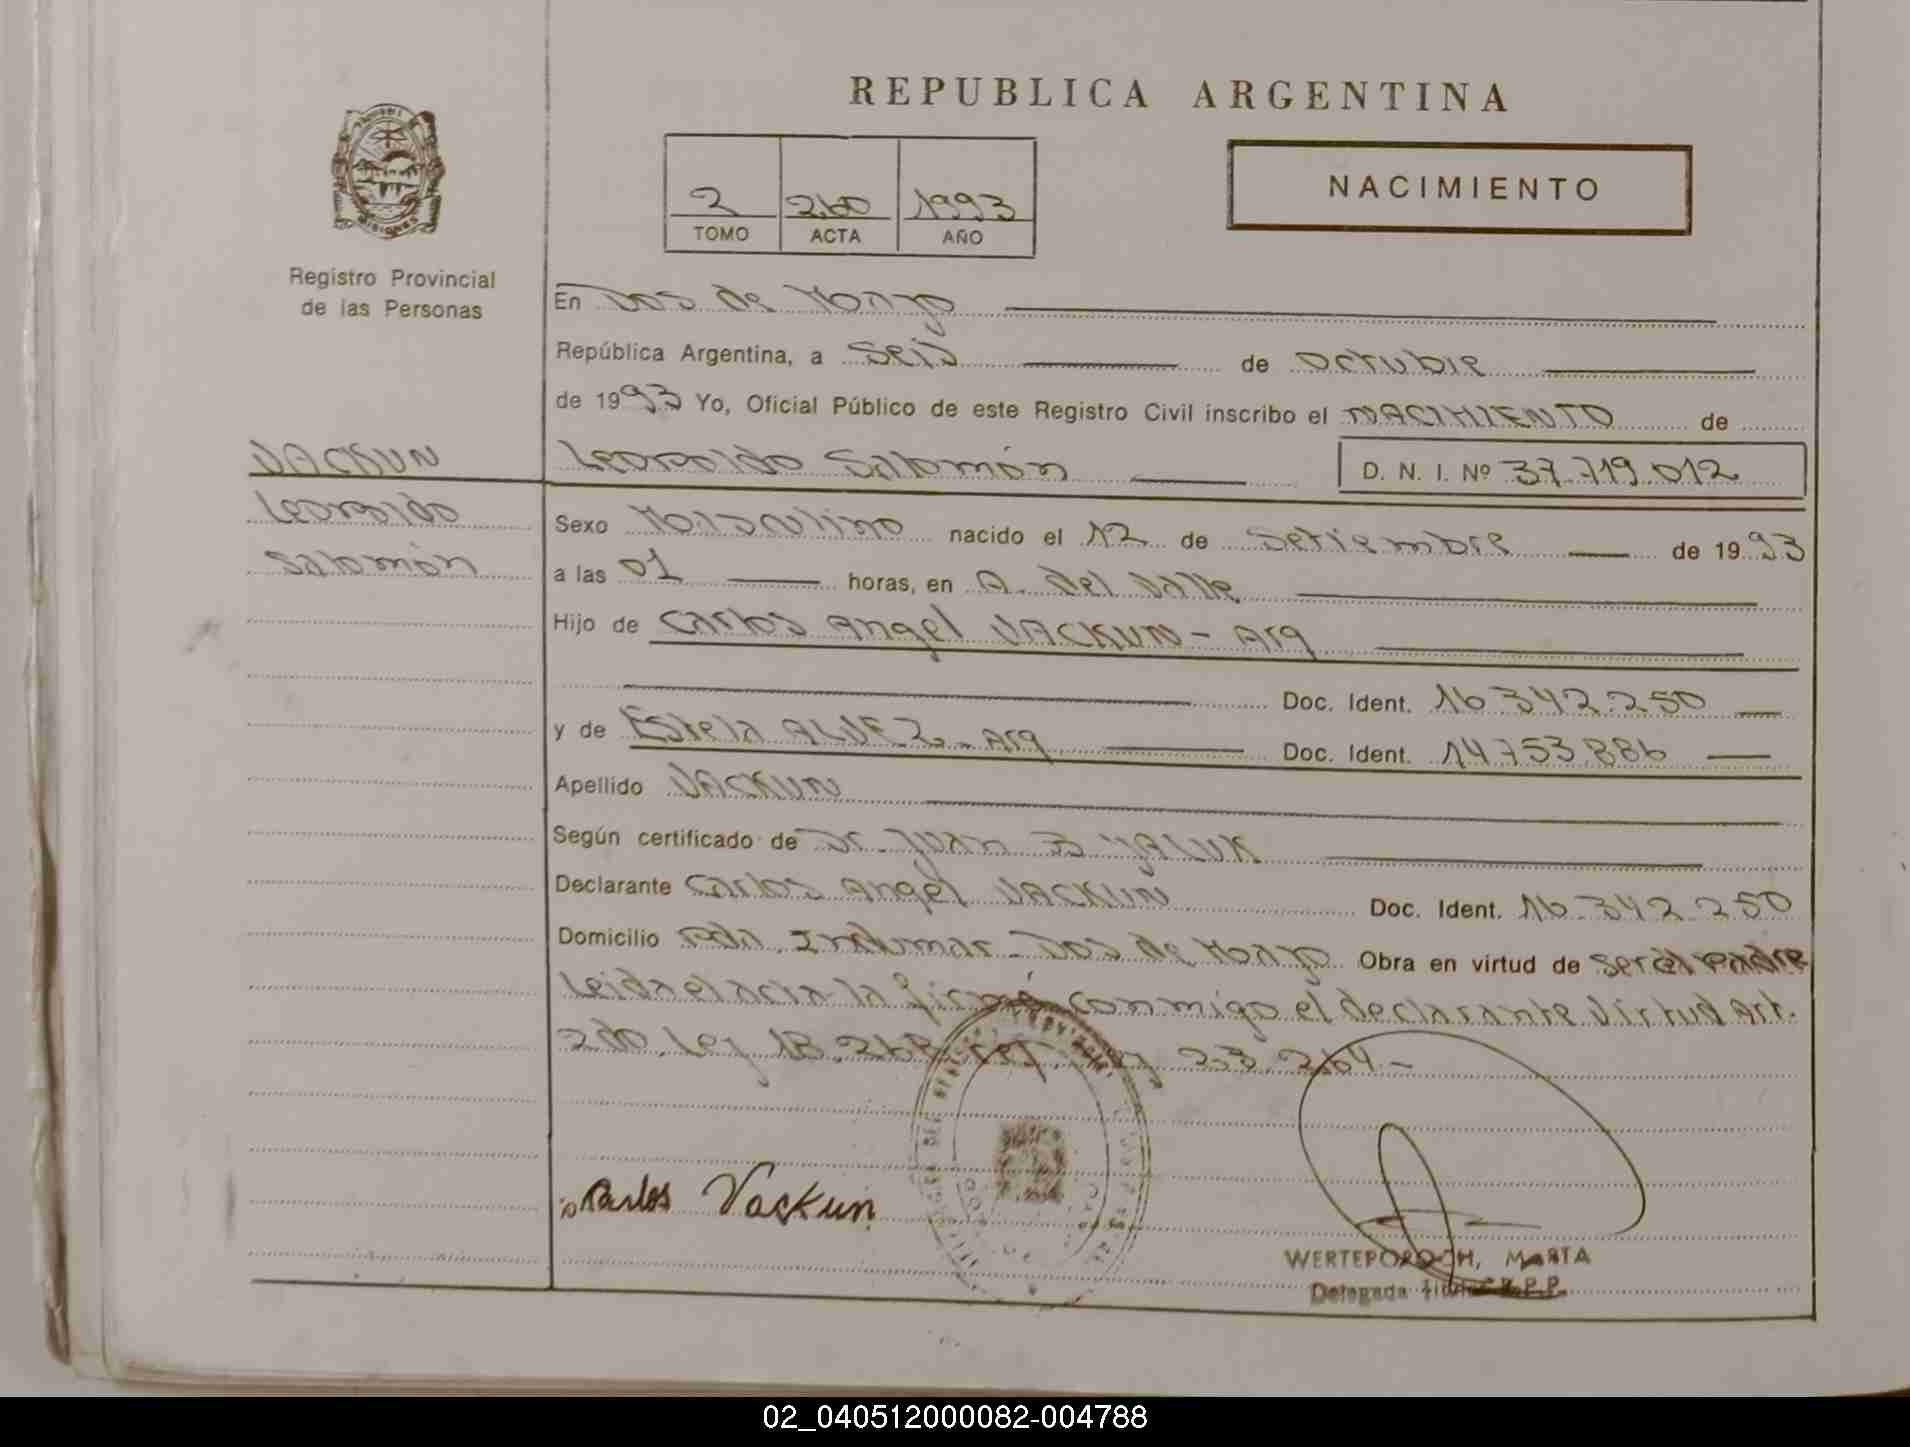 REPUBLICA ARGENTINA
NACIMIENTO
2 260 1993
TOMO ACTA AÑO
MISIONES
Registro Provincial
de las Personas
En Dos de Mayo
República Argentina, a seis de octubre
de 1993 Yo, Oficial Público de este Registro Civil inscribo el NACIMIENTO de
VACKUN
Leopoldo Salomón D. N. I. Nº 37.719.012
Leopoldo
Salomón
Sexo Masculino nacido el 12 de Setiembre de 1993
a las 01 horas, en A. del Valle
Hijo de Carlos Angel VACKUN - Arg
Doc. Ident. 16.342.250
y de Estela ALVEZ - Arg Doc. Ident. 14.753.886
Apellido VACKUN
Según certificado de Dr. Juan B YALUK
Declarante Carlos Angel VACKUN Doc. Ident. 16.342.250
Domicilio Pda. Indumar - Dos de Mayo Obra en virtud de ser el padre
Leida el acta la firma conmigo el declarante Virtud Art.
2do. Ley 18.248 Ley 23.264.-
Carlos Vackun
WERTEPOROCH, MARTA
Delegada Titular R.P.P.
02_040512000082-004788